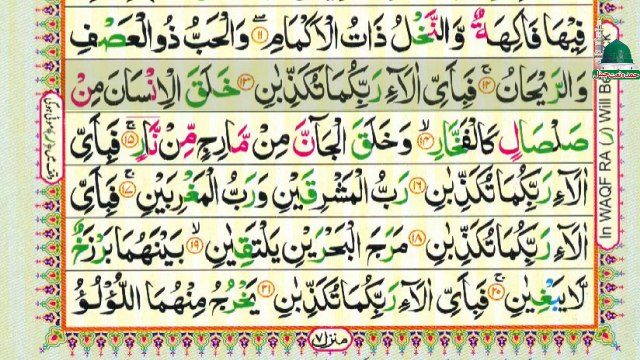 فِيْهَا فَاكِهَةٌ وَّالنَّخْلُ ذَاتُ الْاَكْمَامِ ۖ ۝۱۱ وَالْحَبُّ ذُو الْعَصْفِ
وَالرَّيْحَانُ ۚ ۝۱۲ فَبِاَيِّ اٰلَآءِ رَبِّكُمَا تُكَذِّبٰنِ ۝۱۳ خَلَقَ الْاِنْسَانَ مِنْ
صَلْصَالٍ كَالْفَخَّارِ ۙ ۝۱۴ وَخَلَقَ الْجَآنَّ مِنْ مَّارِجٍ مِّنْ نَّارٍ ۚ ۝۱۵ فَبِاَيِّ
اٰلَآءِ رَبِّكُمَا تُكَذِّبٰنِ ۝۱۶ رَبُّ الْمَشْرِقَيْنِ وَرَبُّ الْمَغْرِبَيْنِ ۚ ۝۱۷ فَبِاَيِّ
اٰلَآءِ رَبِّكُمَا تُكَذِّبٰنِ ۝۱۸ مَرَجَ الْبَحْرَيْنِ يَلْتَقِيٰنِ ۙ ۝۱۹ بَيْنَهُمَا بَرْزَخٌ
لَّا يَبْغِيٰنِ ۚ ۝۲۰ فَبِاَيِّ اٰلَآءِ رَبِّكُمَا تُكَذِّبٰنِ ۝۲۱ يَخْرُجُ مِنْهُمَا اللُّؤْلُؤُ
منزل ۷
In WAQF RA (ر) Will Be